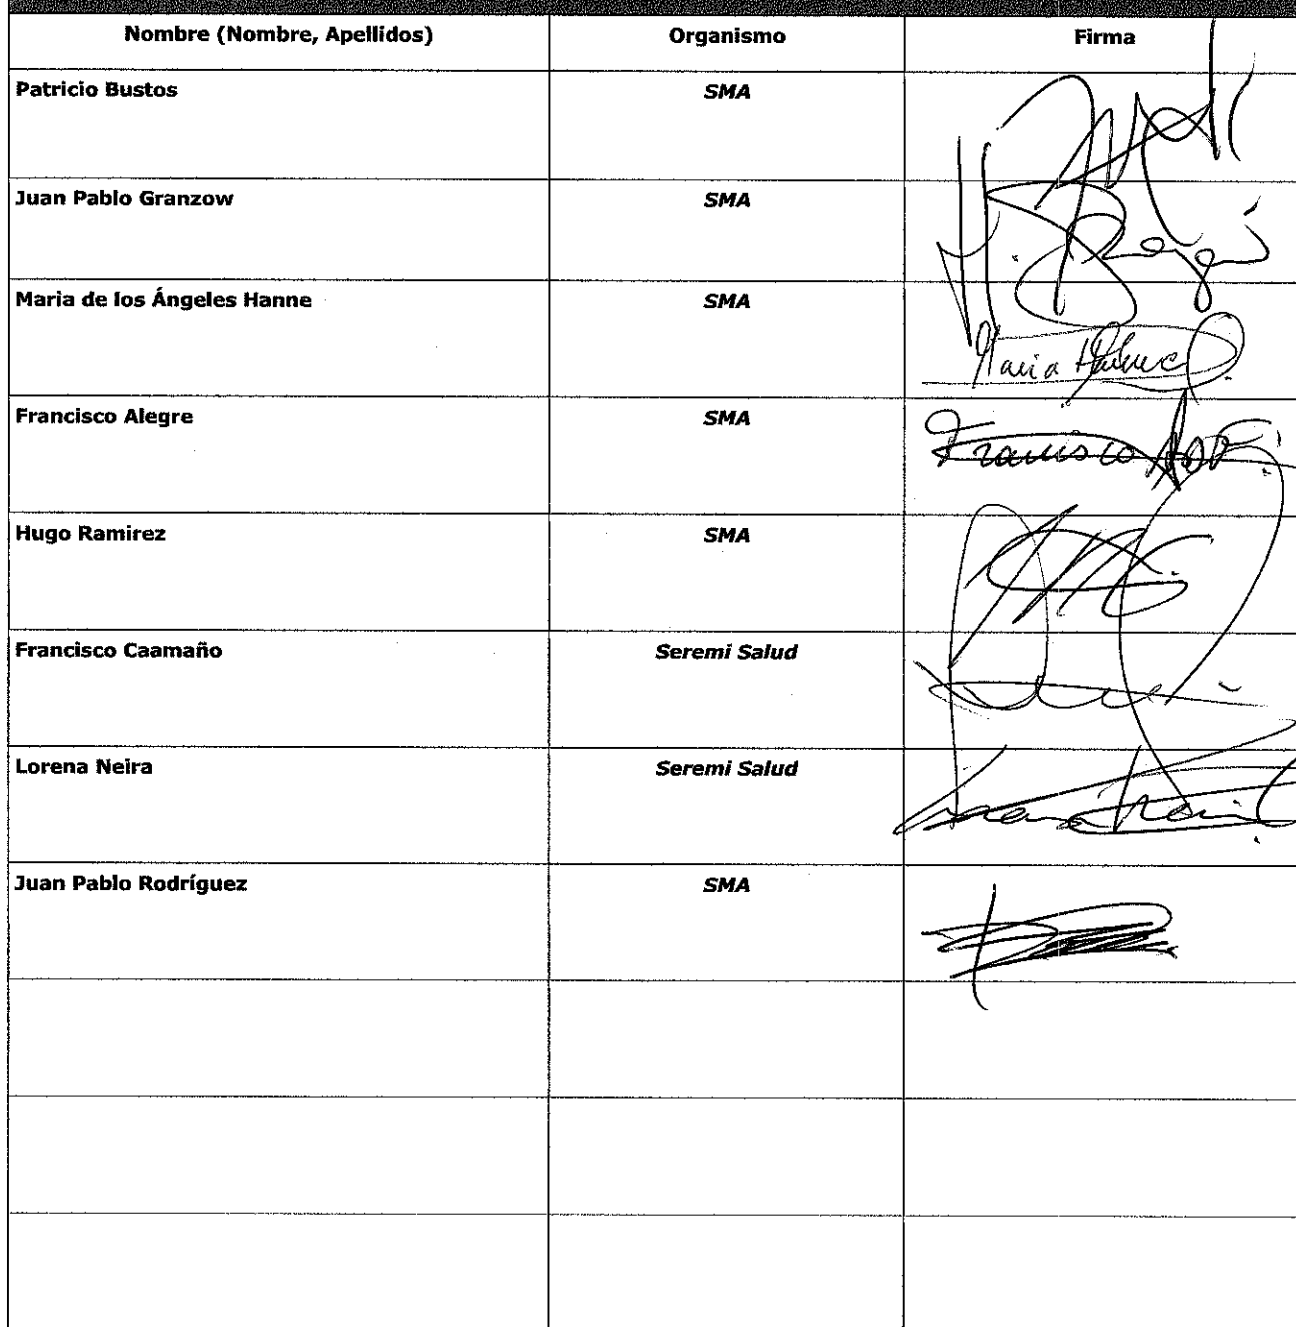 Nombre (Nombre, Apellidos) Organismo Firma
Patricio Bustos SMA
Juan Pablo Granzow SMA
Maria de los Ángeles Hanne SMA
Maria
Francisco Alegre SMA
Francisco
Hugo Ramirez SMA
Francisco Caamaño Seremi Salud
Lorena Neira Seremi Salud
Juan Pablo Rodríguez SMA